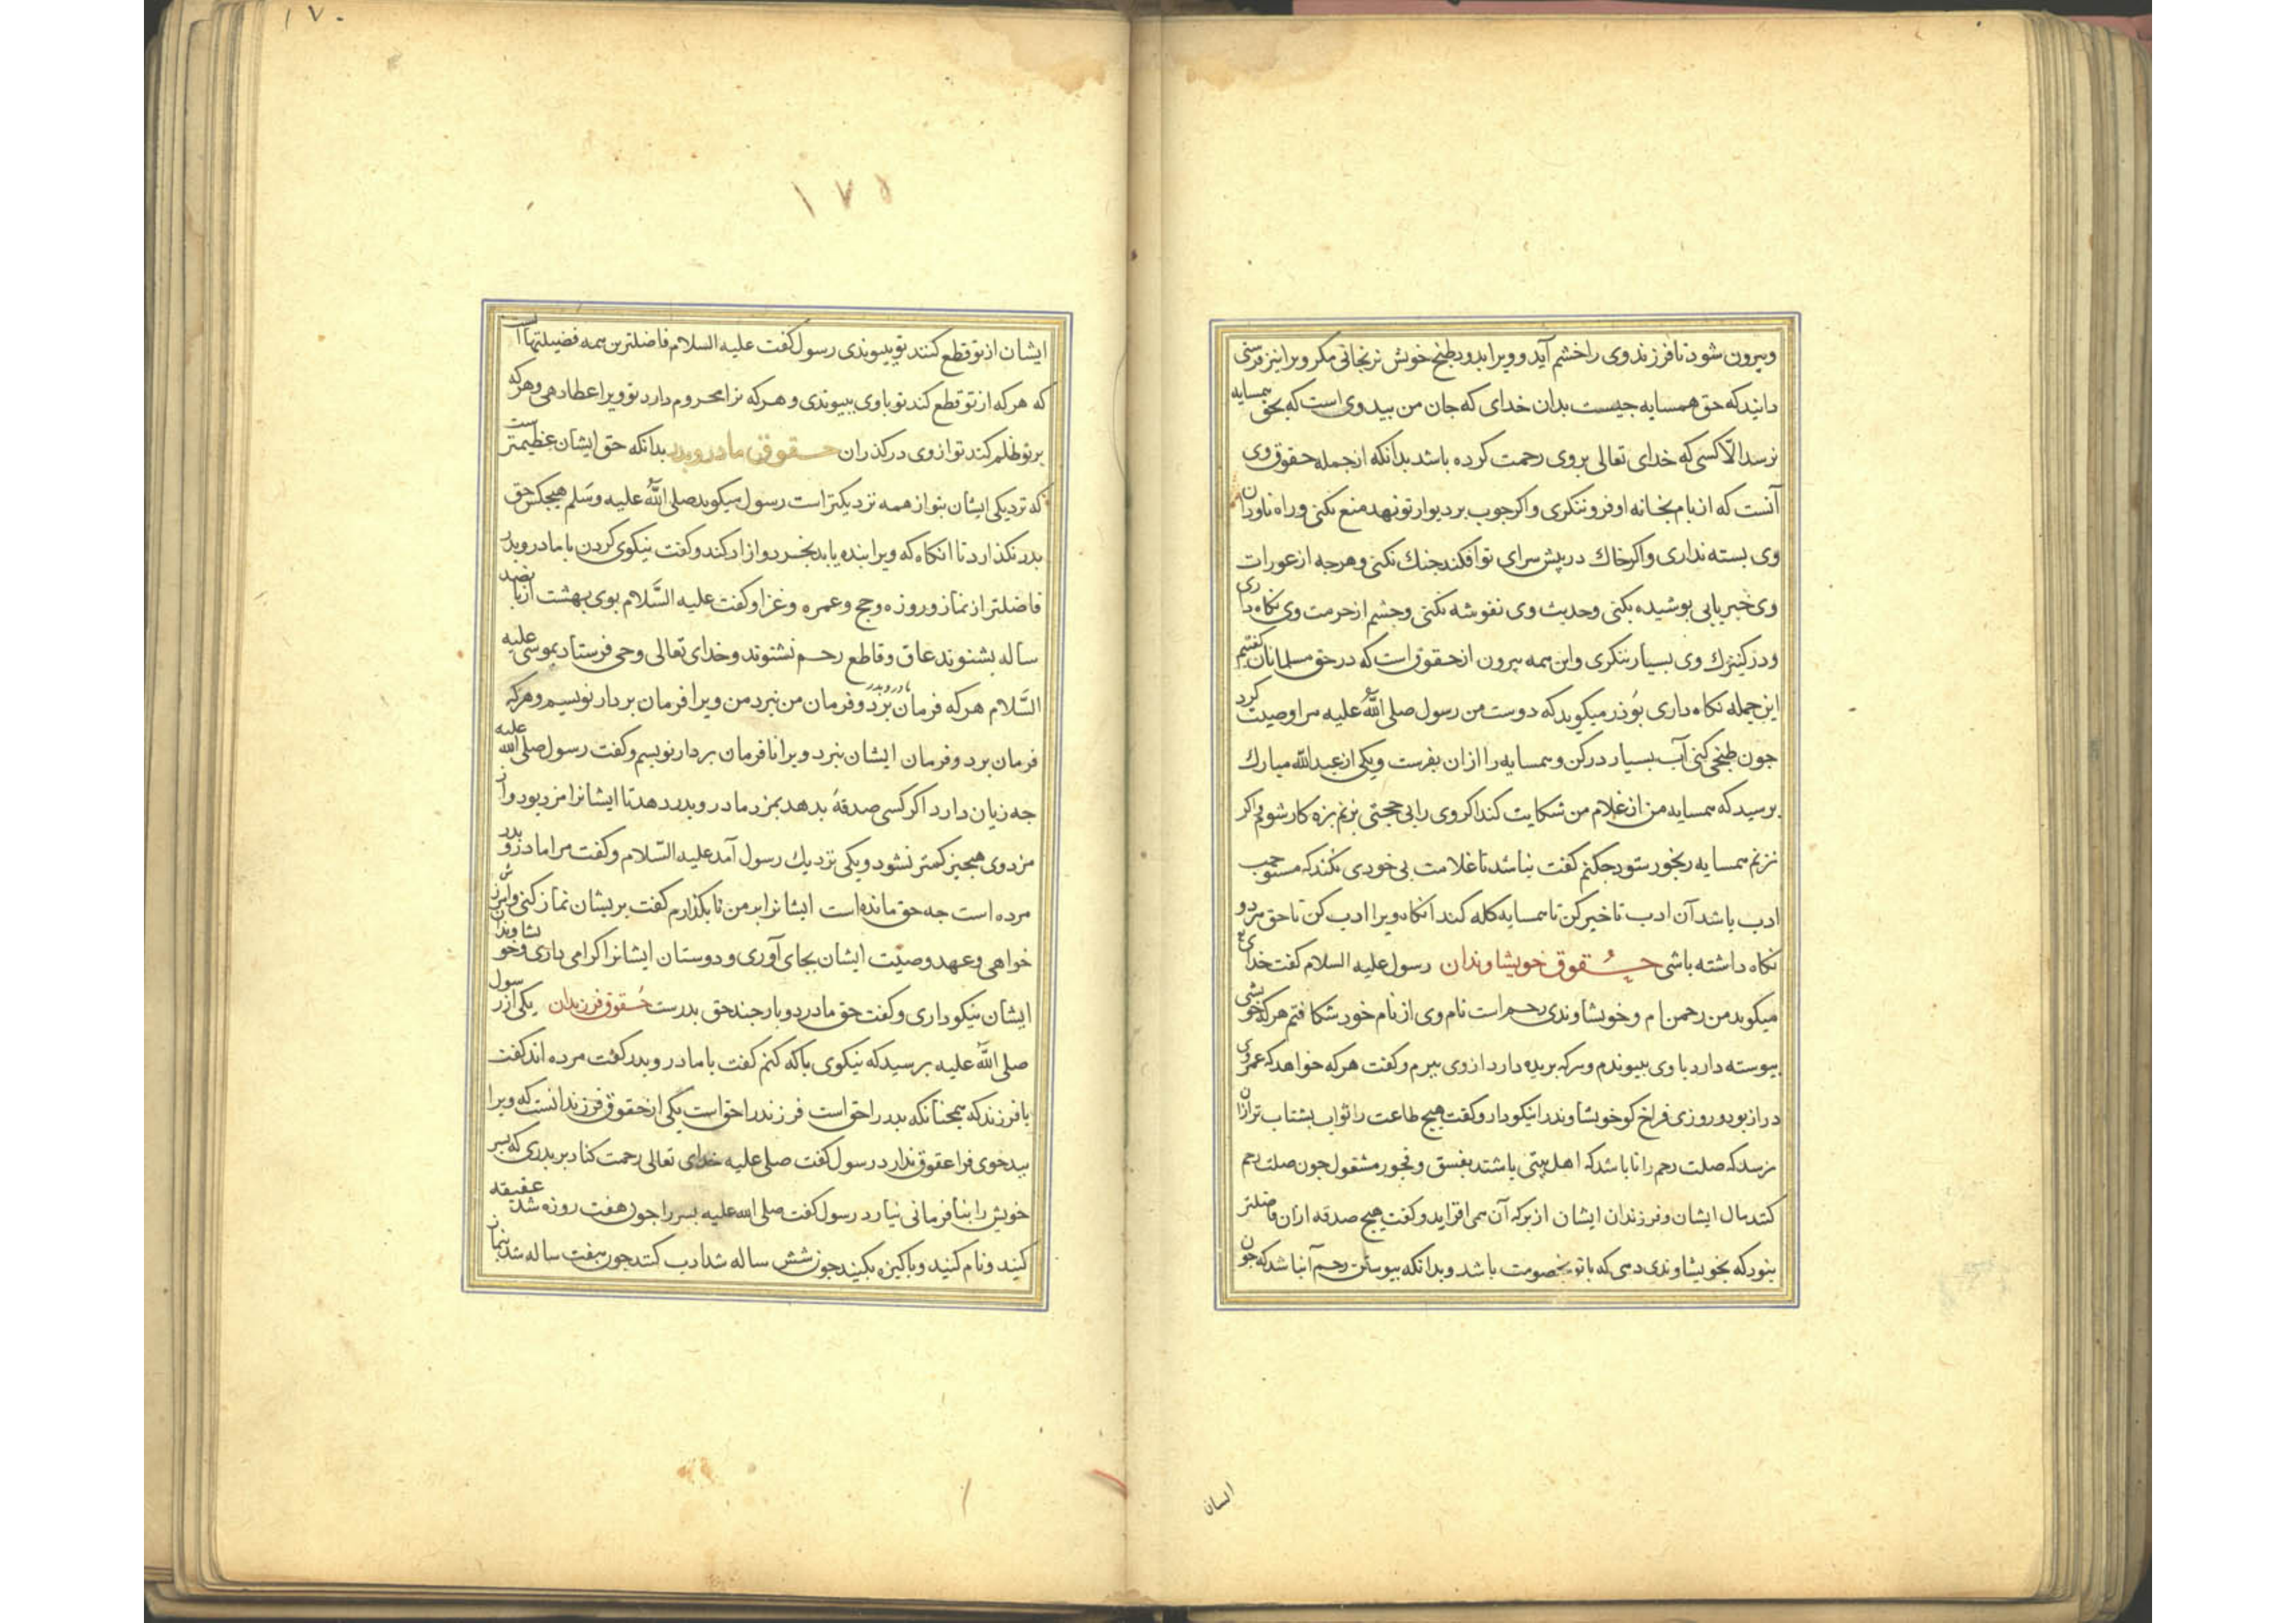 وبیرون شود تا فرزند وی را خشم آید و ویرا بدود طبخ خویش نرنجانی مکر ویرا نیز فرستی
دانید که حق همسایه جیست بدان خدای که جان من بید وی است که بحق همسایه
نرسد الّا کسی که خدای تعالی بروی رحمت کرده باشد بدانکه از جمله حقوق وی
آنست که از بام بخانه او فرو ننکری واکر جوب بر دیوار تو نهد منع نکنی وراه ناودان
وی بسته نداری واکر خاك در پیش سرای تو افکند جنك نکنی وهرجه از عورات
وی خبر یابی بوشیده بکنی وحدیث وی نغوشه نکنی وجشم از حرمت وی نکاه داری
ودر کنیزك وی بسیار ننکری واین همه بیرون از حقوق است که در حق مسلمانان کفتیم
این جمله نکاه داری بوذر میکوید که دوست من رسول صلی اللّه علیه مرا وصیت کرد
جون طبخی کنی آب بسیار در کن وهمسایه را از ان بفرست ویکی از عبد اللّه مبارك
برسید که همسایه من از غلام من شکایت کند اکر وی را بی حجتی بزنم بزه کار شوم واکر
نزنم همسایه رنجور شود جکنم کفت باشد تا غلامت بی خردی بکند که مستوجب
ادب باشد آن ادب تاخیر کن تا همسایه کله کند انکاه ویرا ادب کن تا حق هر دو
نکاه داشته باشی حُقوق خویشاوندان رسول علیه السلام کفت خدای
میکوید من رحمن ام وخویشاوندی رحم است نام وی از نام خود شکافتم هر که خویشی
بیوسته دارد با وی بیوندم وهر که بریده دارد از وی ببرم وکفت هر که خواهد که عمر وی
دراز بود وروزی فراخ کو خویشاوندرا نیکو دار وکفت هیج طاعت را ثواب بشتاب تر ازان
نرسد که صلت رحم را تا باشد که اهل بیتی باشند بفسق وفجور مشغول جون صلت رحم
کنند مال ایشان وفرزندان ایشان از برکه آن همی افزاید وکفت هیج صدقه ازان فاضلتر
نبود که بخویشاوندی دهی که باتو بخصومت باشد وبدانکه بیوستن رحم آن باشد که جون
ایشان
۱۷۰
۱۷۵
ایشان از تو قطع کنند تو بیوندی رسول کفت علیه السلام فاضلترین همه فضیلتها است
که هر که از تو قطع کند تو باوی ببیوندی وهرکه ترا محروم دارد تو ویرا عطا دهی وهرکه
بر تو ظلم کند تو از وی در کذران حقوق مادر وپدر بدانکه حق ایشان عظیمتر ست
که نزدیکی ایشان بتو از همه نزدیکتر است رسول میکوید صلی اللّه علیه وسلم هیجکس حق
بدر نکذارد تا انکاه که ویرا بنده یابد بخرد وازاد کند وکفت نیکوی کردن با مادر وبدر
فاضلتر از نماز وروزه وحج وعمره وغزا وکفت علیه السّلام بوی بهشت از بانصد
ساله بشنوند عاق وقاطع رحم نشنوند وخدای تعالی وحی فرستاد بموسی علیه
السّلام هر که فرمان مادر وبدر برد وفرمان من نبرد من ویرا فرمان بردار نویسم وهرکه
فرمان برد وفرمان ایشان نبرد ویرا نافرمان بردار نویسم وکفت رسول صلی اللّه علیه
جه زیان دارد اکر کسی صدقهٔ بدهد بمزد مادر وبدر دهد تا ایشانرا مزد بود واز
مزد وی هیجیز کمتر نشود ویکی نزدیك رسول آمد علیه السّلام وکفت مرا مادر و بدر
مرده است جه حق مانده است ایشانرا بر من تا بکذارم کفت بریشان نماز کنی وامرزش
خواهی وعهد وصیّت ایشان بجای آوری ودوستان ایشانرا کرامی داری وخویشاوندان
ایشان نیکو داری وکفت حق مادر دو بار جند حق بدرست حُقوق فرزندان یکی از رسول
صلی اللّه علیه برسید که نیکوی باکه کنم کفت با مادر وبدر کفت مرده اند کفت
با فرزند که همجنانکه بدر را حق است فرزند را حق است یکی از حقوق فرزند انست که ویرا
ببدخوی فرا عقوق ندارد رسول کفت صلی علیه خدای تعالی رحمت کناد بر بدری که بسر
خویش را بنا فرمانی نیارد رسول کفت صلی اللّه علیه بسر را جون هفت روزه شد عقیقه
کنید ونام کنید وباکیزه بکنید جون شش ساله شد ادب کنند جون هفت ساله شد بنماز